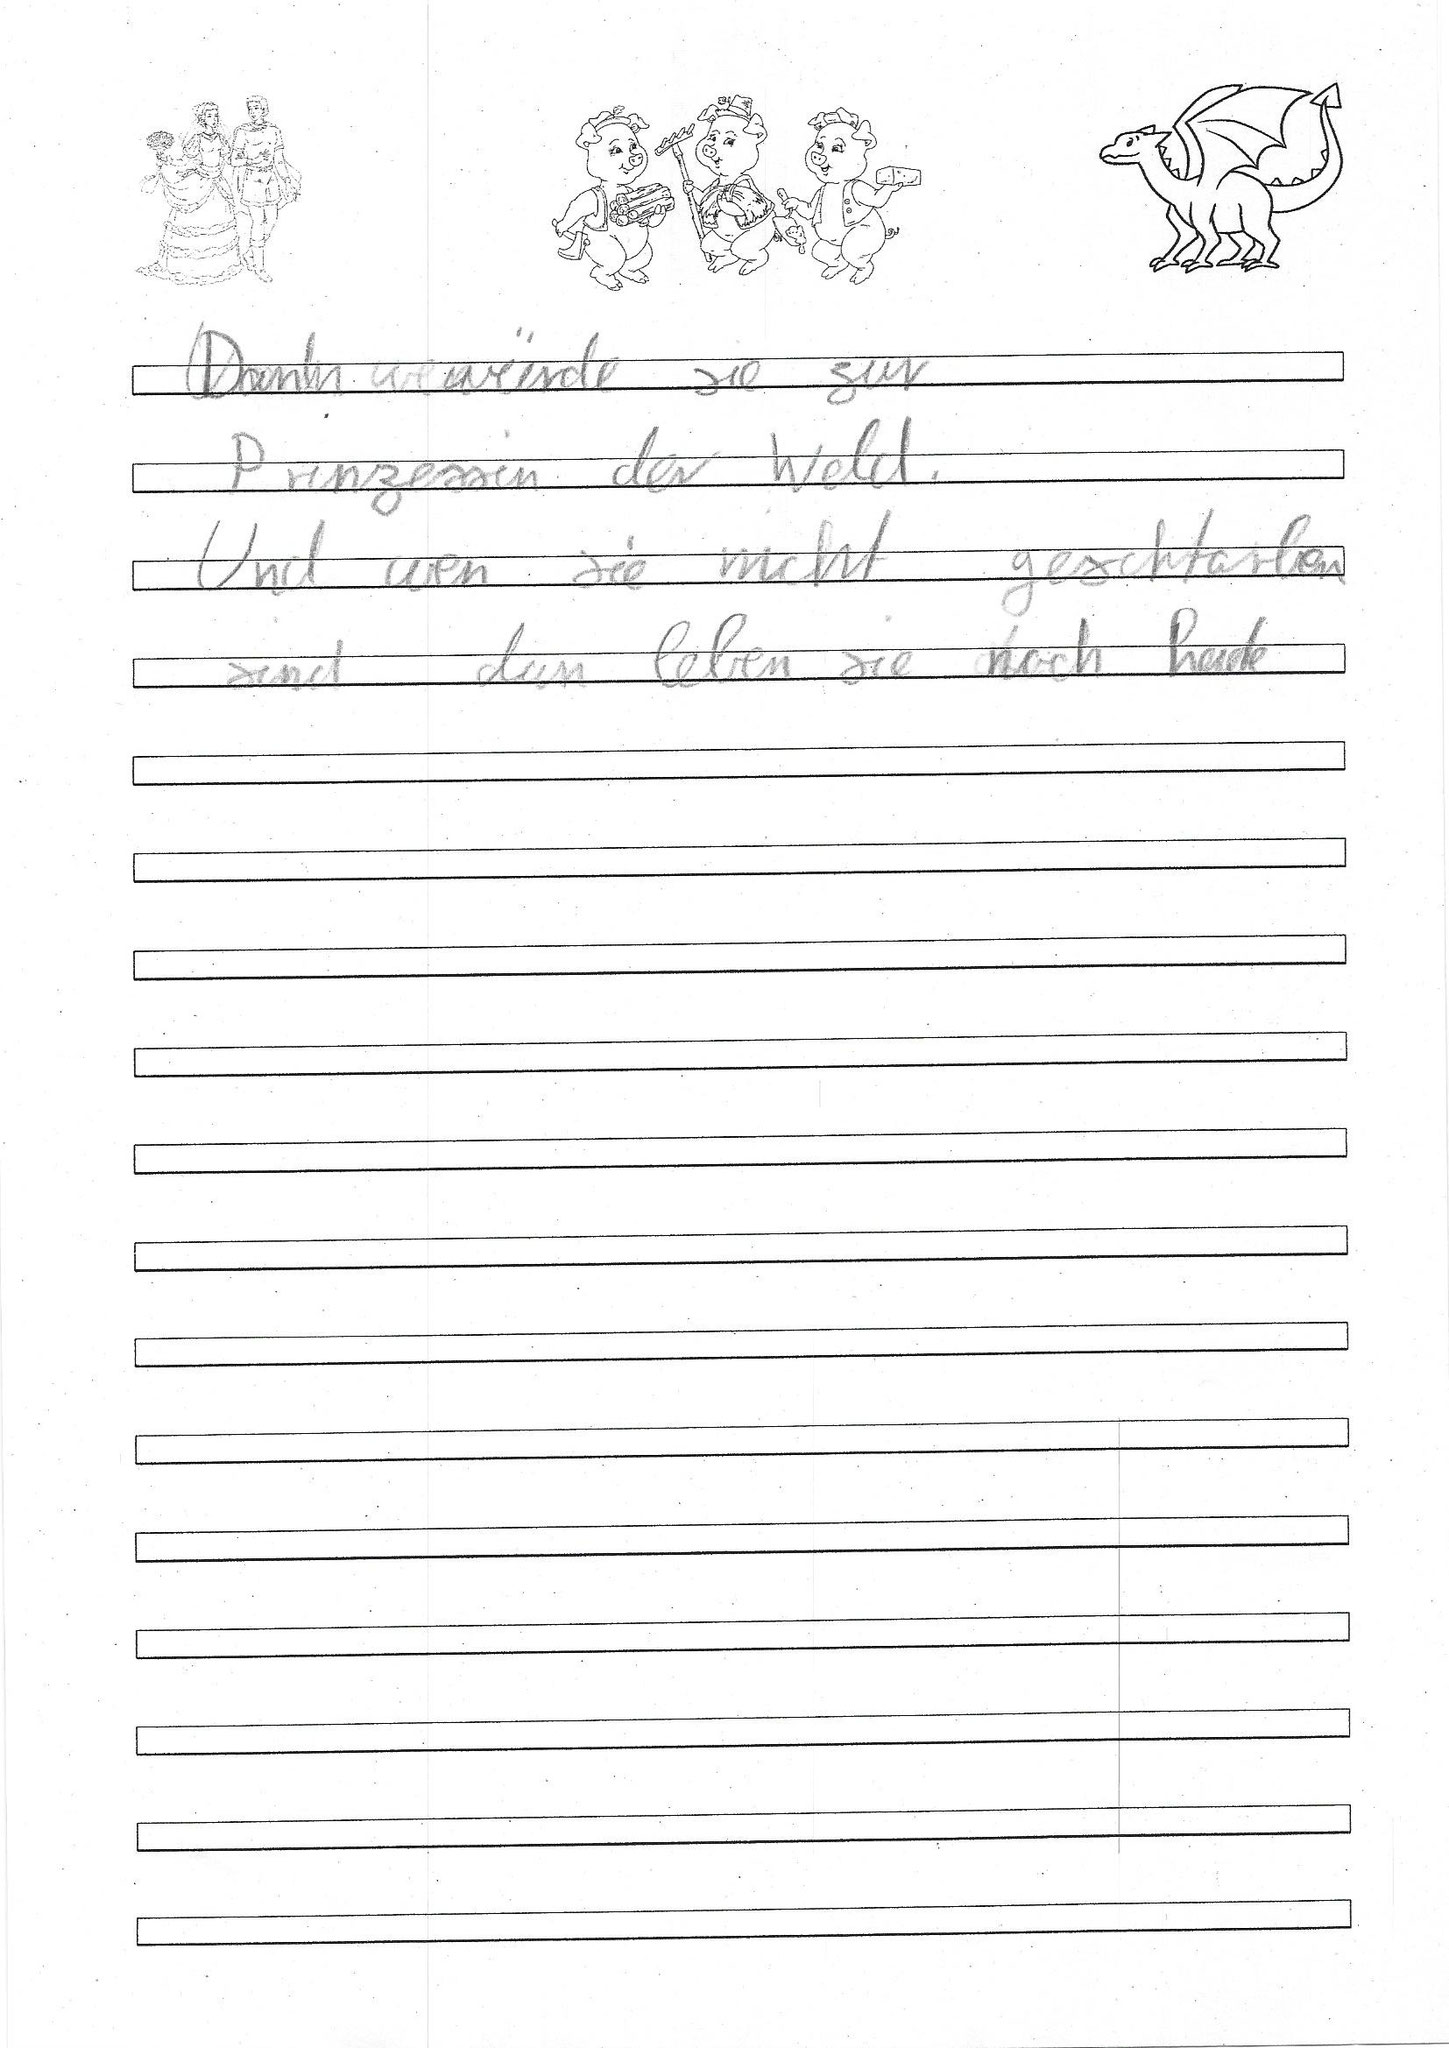 Dann würde sie zur
Prinzessin der Weld.
Und wen sie nicht geschtarben
sind dan leben sie noch heude